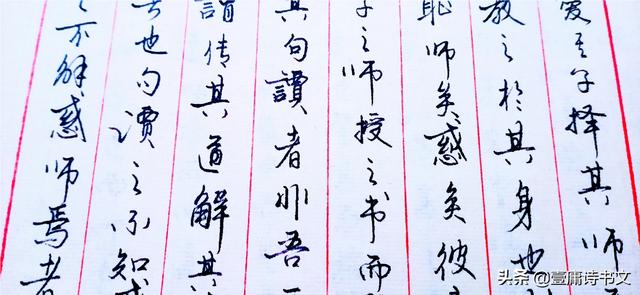 爱其子择其师
教之於其身也
耻师矣惑矣彼
子之师授之书而
其句讀者非吾
謂传其道解其
者也句读之不知惑
之不解惑师焉者
头条 @壹庸诗书文